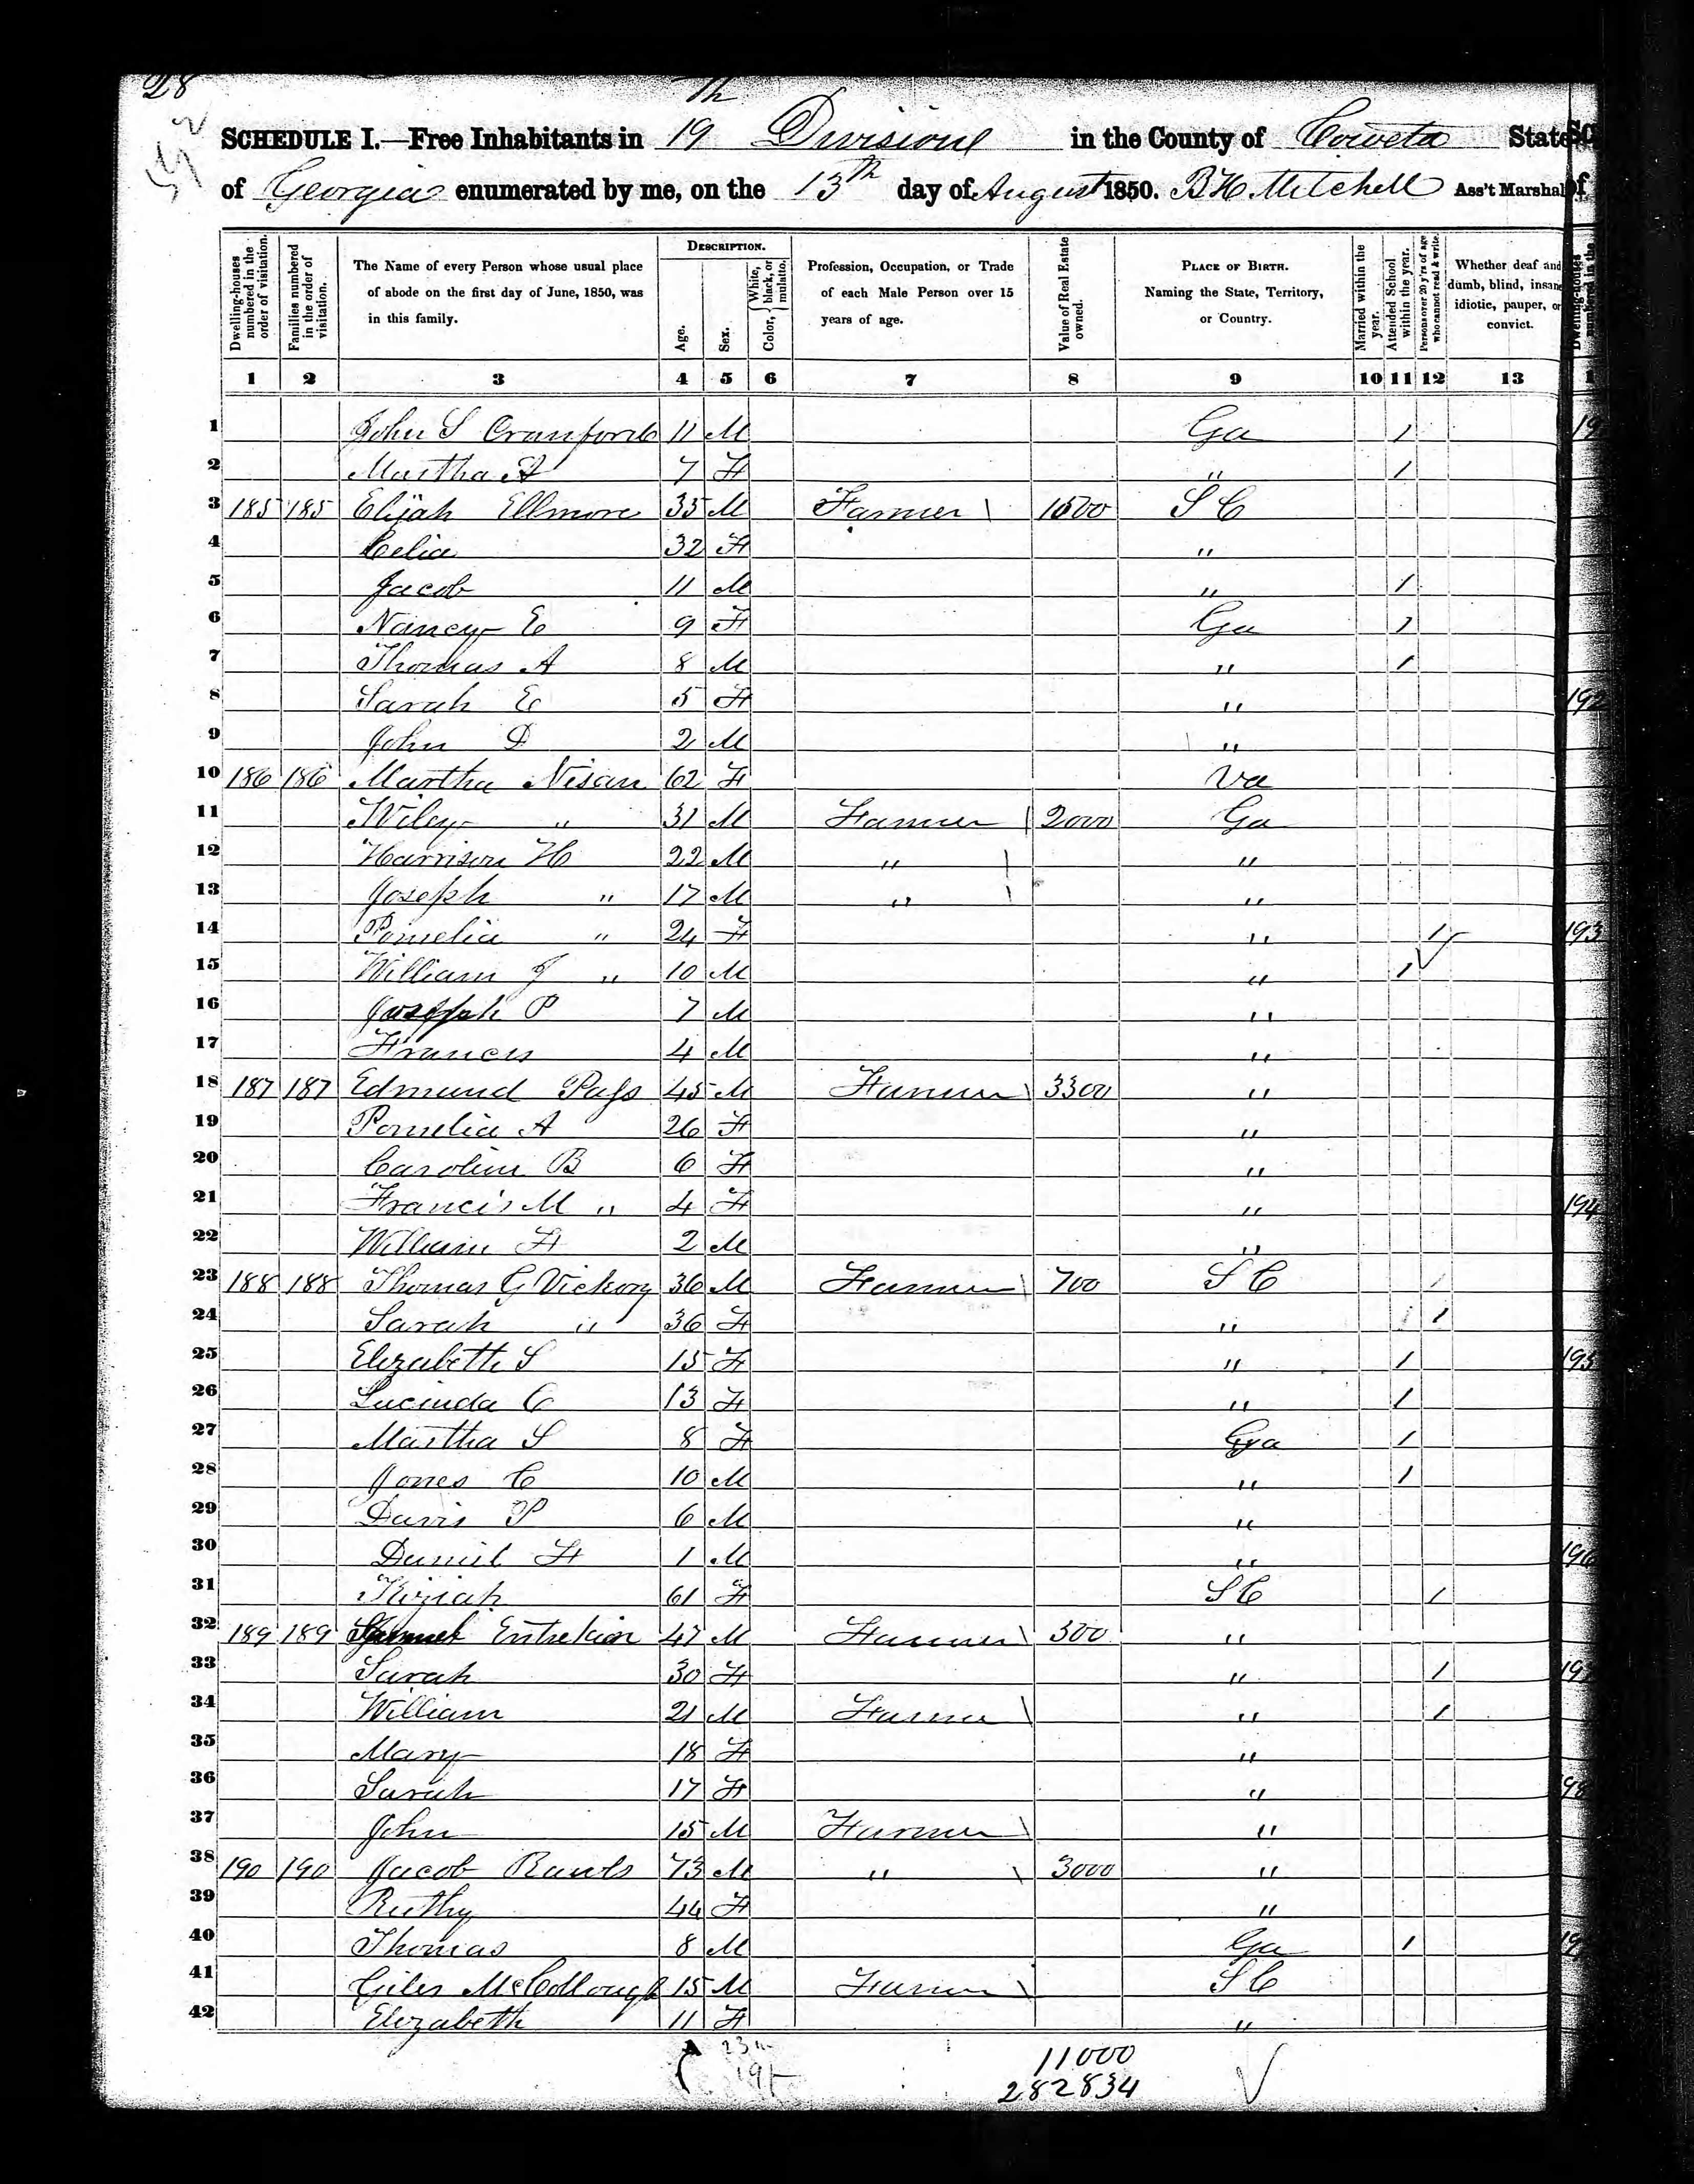 28
Th
SCHEDULE I.—Free Inhabitants in 19 Division in the County of Coweta State
of Georgia enumerated by me, on the 13th day of August 1850. B H Mitchell Ass't Marshal
Dwelling-houses numbered in the order of visitation. Families numbered in the order of visitation. The Name of every Person whose usual place of abode on the first day of June, 1850, was in this family. DESCRIPTION. Age. Sex. Color, White, black, or mulatto. Profession, Occupation, or Trade of each Male Person over 15 years of age. Value of Real Estate owned. PLACE OF BIRTH. Naming the State, Territory, or Country. Married within the year. Attended School within the year. Persons over 20 y'rs of age who cannot read & write. Whether deaf and dumb, blind, insane, idiotic, pauper, or convict.
1 2 3 4 5 6 7 8 9 10 11 12 13
1 John S Cranford 11 M Ga 1
2 Martha A 7 F " 1
3 185 185 Elijah Ellmore 35 M Farmer 1500 S C
4 Celia 32 F "
5 Jacob 11 M " 1
6 Nancy E 9 F Ga 1
7 Thomas A 8 M " 1
8 Sarah E 5 F "
9 John D 2 M "
10 186 186 Martha Nisan 62 F Va
11 Wiley " 31 M Farmer 2000 Ga
12 Harrison H 22 M " "
13 Joseph " 17 M " "
14 Pamelia " 24 F " 1
15 William J " 10 M " 1
16 Joseph P 7 M "
17 Francis 4 M "
18 187 187 Edmund Pass 45 M Farmer 3300 "
19 Pamelia A 26 F "
20 Carolin B 6 F "
21 Francis M " 4 F "
22 William F 2 M "
23 188 188 Thomas G Vickory 36 M Farmer 700 S C
24 Sarah " 36 F " 1
25 Elizabeth S 15 F " 1
26 Lucinda C 13 F " 1
27 Martha S 8 F Ga 1
28 Jones C 10 M " 1
29 Davis P 6 M "
30 Daniel F 1 M "
31 Kiziah 61 F S C 1
32 189 189 Samuel Entrekin 47 M Farmer 300 "
33 Sarah 30 F " 1
34 William 21 M Farmer " 1
35 Mary 18 F "
36 Sarah 17 F "
37 John 15 M Farmer "
38 190 190 Jacob Rawls 73 M " 3000 "
39 Ruthy 44 F "
40 Thomas 8 M Ga 1
41 Giles McCollough 15 M Farmer S C
42 Elizabeth 11 F "
11000
282834